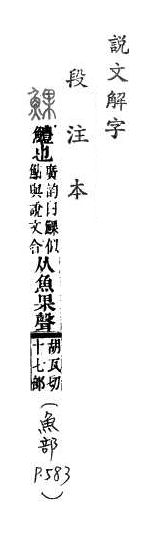 說文解字
段注本
鱓也
廣韵曰鰥似
鮎與說文合
从魚果聲
胡瓦切
十七部
(魚部
P.583)